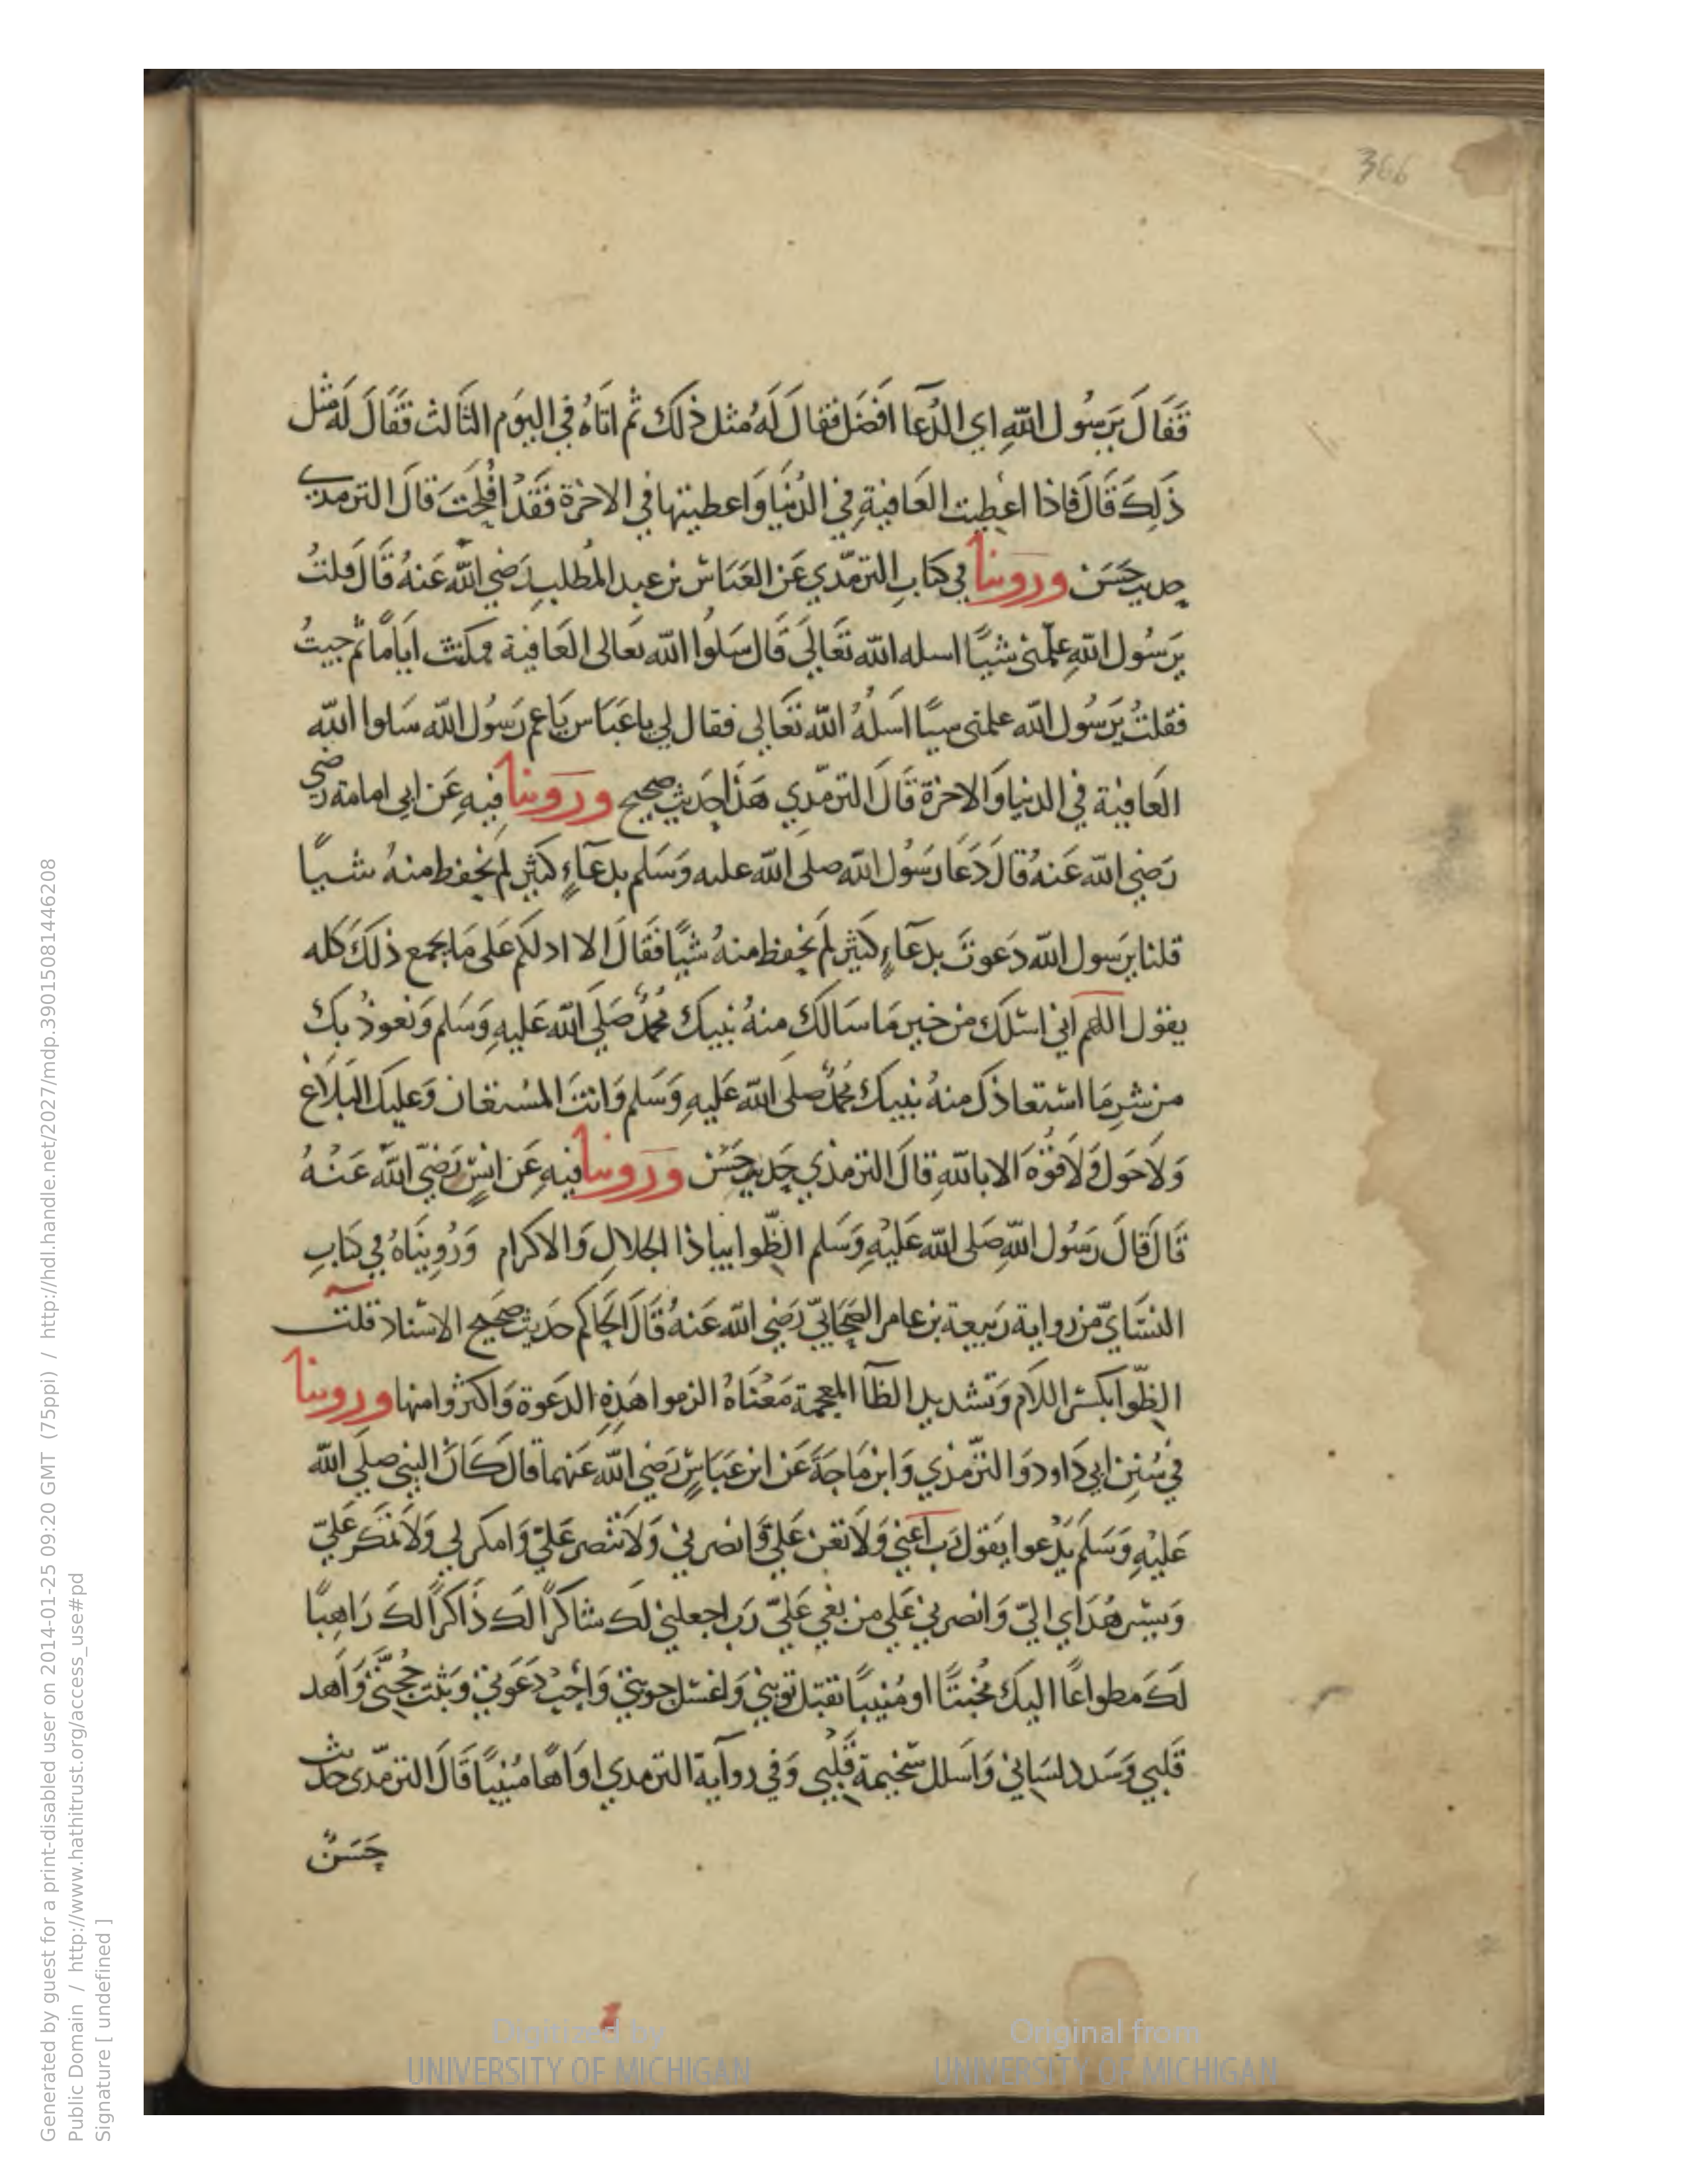 366
فَقَالَ يَرَسُول اللهِ اي الدُعآ افضَل فقال لَهُ مثل ذلك ثم اتَاهُ في اليوَم الثَالث فَقَالَ لَهُ مثل
ذَلِكَ قَالَ فَاذا اعُطِيت العَافيةِ في الدُنيَا وَاعطيتها في الاخرَة فَقَدْ افُلِحْتَ قالَ الترمدي
حديث حَسَن وروينا في كتابِ الترمّدي عَن العَبَاس بن عبد المُطلبِ رَضي الله عَنهُ قَالَ قلتُ
يرَسُول اللهِ علّمني شيًا اسله الله تعَالَى قَال سَلوُا الله تعالى العَافية فمكثت ايَامًا ثم جيتُ
فقلتُ يرَسُول الله علمني سيًا اسَلهُ الله تعَالى فقال لي ياعَبَاس يَاعم رَسُول الله سَلوا الله
العَافيَة في الدنيا وَالاخرَة قَالَ الترمّدي هَذا حَديث صحيح وروينا فيهِ عَن ابي امامة رَضي
رَضي الله عَنهُ قالَ دَعَا رَسُول الله صلى الله عليه وَسَلم بدعَآءٍ كثيرٍ لم نحفط منهُ شيًا
قلنا يرَسول الله دَعوتَ بدعَآءٍ كثيرٍ لم نحفظ منهُ شيًا فقَالَ الا ادلكم عَلى مَا يجمع ذلكَ كله
يقول اللهم اني اسئلكَ من خيرِ مَا سَالكَ منهُ نبيك مُحمدٌ صَلى الله عَليهِ وَسَلم وَنعوذُ بكَ
من شرِ مَا استعاذكَ منهُ نبيك مُحمدٌ صلى الله عَليهِ وَسَلم وَانتَ المسُتعَان وَعليك البَلَاغ
وَلَا حَول وَلَا قوُة الا باللهِ قالَ الترمذي حَديث حَسَن وروينا فيهِ عَن انسٍ رَضيَ الله عَنهُ
قَالَ قالَ رَسُول اللهِ صَلى الله عَليْهِ وَسَلم الظّوا بياذا الجلالِ وَالاكرام وَرُوِينَاهُ في كتابِ
النسَايّ من رواية رَبيعة بن عامر الصَحَابيّ رَضي الله عَنهُ قَالَ الحَاكم حَديث صَحيح الاسناد قلت
الظّوا بكسر اللام وَتشديد الظآ المعجمة مَعْنَاهُ الزموا هَذِهِ الدَعوة وَاكثروا منها وروينا
في سُننِ ابي دَاود وَالترّمذي وَابن مَاجَة عَن ابن عبَاسٍ رَضي الله عَنهما قالَ كَانَ النبي صلى الله
عَليْهِ وَسَلَم يَدْعوا يَقول رَب اعَني وَلَا تعَن عَلي وَانصرني وَلَا تنُصر عَليّ وَامكر لي وَلَا تمكر عَليّ
وَيسّر هُدَاي اليّ وَانصرني عَلى من بغي عَليّ رَب اجعلني لكَ شاكرًا لكَ ذَاكرًا لكَ رَاهبًا
لكَ مطواعًا اليكَ مُخبتًا او مُنيبًا تقبَل توبتي وَاغسَل حوبتي وَاجبْ دَعَوتي وَثبت حُجّتي وَاهد
قَلبي وَسَدد لسَاني وَاسلل سَخيمة قَلْبي وَفي روآية الترمدي اوَاهًا مُنيبًا قَالَ الترمّدى حديث
حَسَنٌ
Digitized by
UNIVERSITY OF MICHIGAN
Original from
UNIVERSITY OF MICHIGAN
Generated by guest for a print-disabled user on 2014-01-25 09:20 GMT (75ppi) / http://hdl.handle.net/2027/mdp.39015081446208
Public Domain / http://www.hathitrust.org/access_use#pd
Signature [ undefined ]